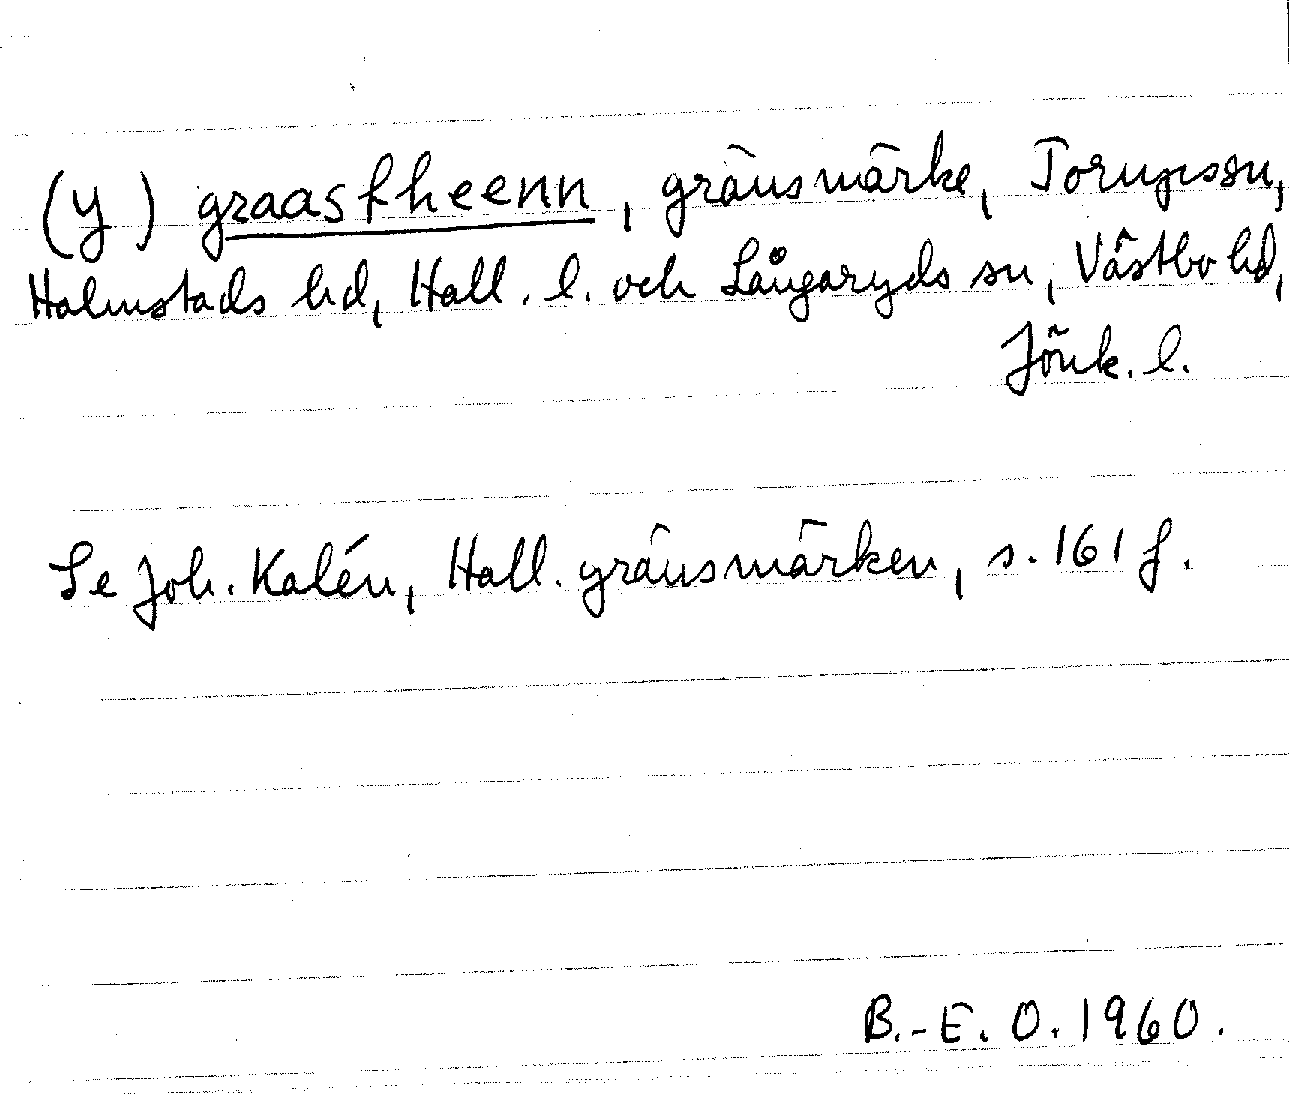 (y) graaskheenn, gränsmärke, Torups sn,
Halmstads hd, Hall. l. och Långaryds sn, Västbo hd,
Jönk. l.
Se Joh. Kalén, Hall. gränsmärken, s. 161 f.
B.-E. O. 1960.